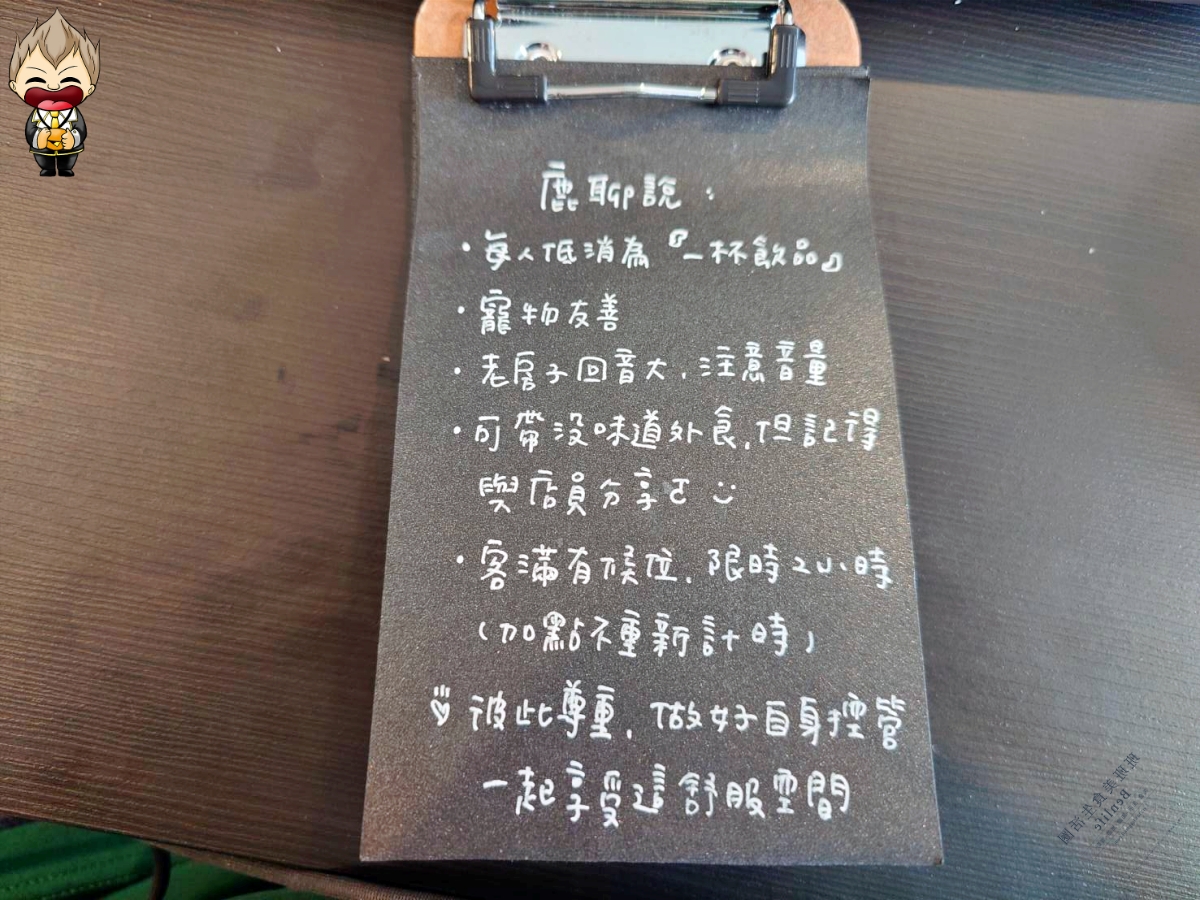 鹿聊說：
・每人低消為『一杯飲品』
・寵物友善
・老房子回音大，注意音量
・可帶沒味道外食，但記得
與店員分享ㄛ :)
・客滿有候位，限時2小時
(加點不重新計時)
♡ 彼此尊重，做好自身控管
一起享受這舒服空間
班班美食生活圈
Benlife